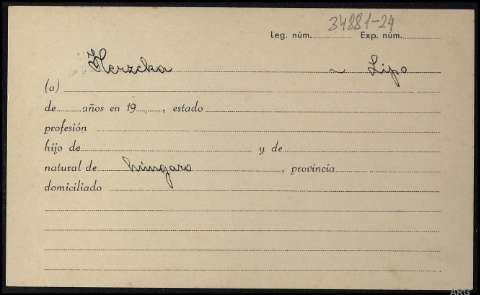 34881-24
Leg. núm. Exp. núm.
Herzcka ~ Lipo
(a)
de años en 19 , estado
profesión
hijo de y de
natural de húngaro , provincia
domiciliado
ARG